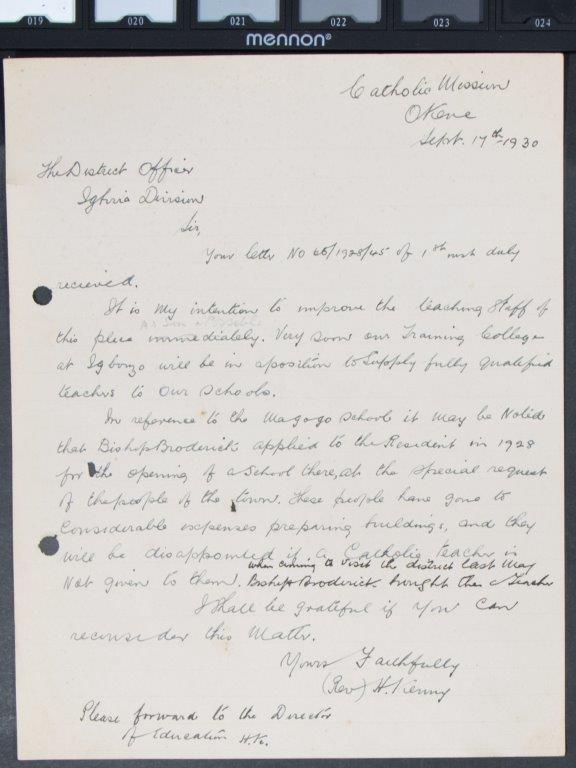 019 020 021 022 023 024
mennon®
Catholic Mission
Okene
Sept. 17th 1930
The District Officer
Igbirra Division
Sir,
Your letter No 46/1928/45 of 1st inst duly
recieved.
It is my intention to improve the teaching Staff of
As Soon as Possible
this place immediately. Very soon our Training College
at Igbonzo will be in aposition to supply fully qualified
teachers to our schools.
In reference to the Magogo School it may be Noted
that Bishop Broderick applied to the Resident in 1928
for the opening of a School there, at the special request
of the people of the town. These people have gone to
considerable expenses preparing buildings, and they
will be disappointed if a Catholic teacher is
when coming to visit the district last May
Not given to them. Bishop Broderick brought the Teacher
I shall be grateful if you can
reconsider this Matter.
Yours Faithfully
(Rev) H.
Please forward to the Director
of Education H.K.